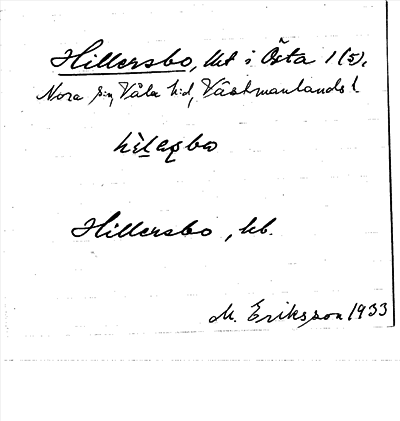 Hillersbo, lht i Östa 1(5),
Nora sn, Våla hd, Västmanlands l.
Hillersbo, kb.
M. Eriksson 1933